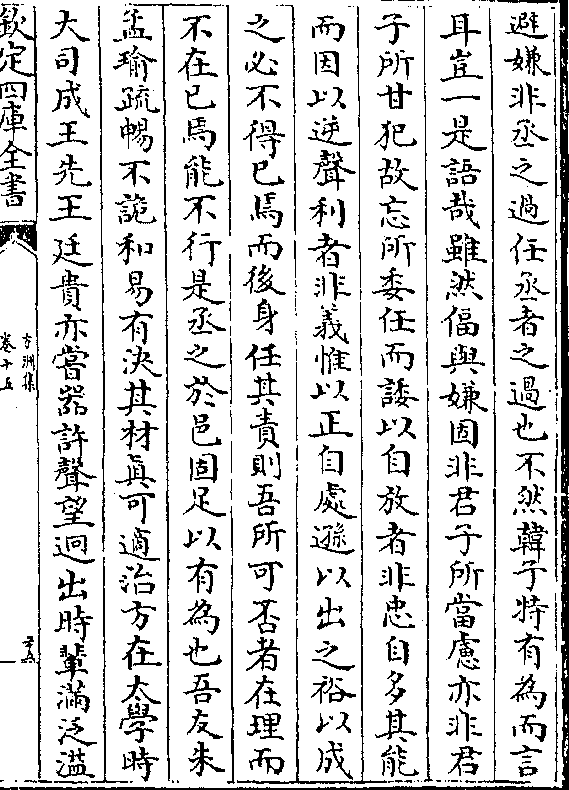 避嫌非丞之過任丞者之過也不然韓子特有為而言
耳豈一是語哉雖然偪與嫌固非君子所當慮亦非君
子所甘犯故忘所委任而諉以自放者非忠自多其能
而因以逆聲利者非義惟以正自處遜以出之裕以成
之必不得已焉而後身任其責則吾所可否者在理而
不在已焉能不行是丞之於邑固足以有為也吾友朱
孟瑜疏暢不詭和易有決其材真可適治方在太學時
大司成王先王廷貴亦嘗器許聲望迥出時輩滿泛溢
欽定四庫全書
方洲集
卷十五